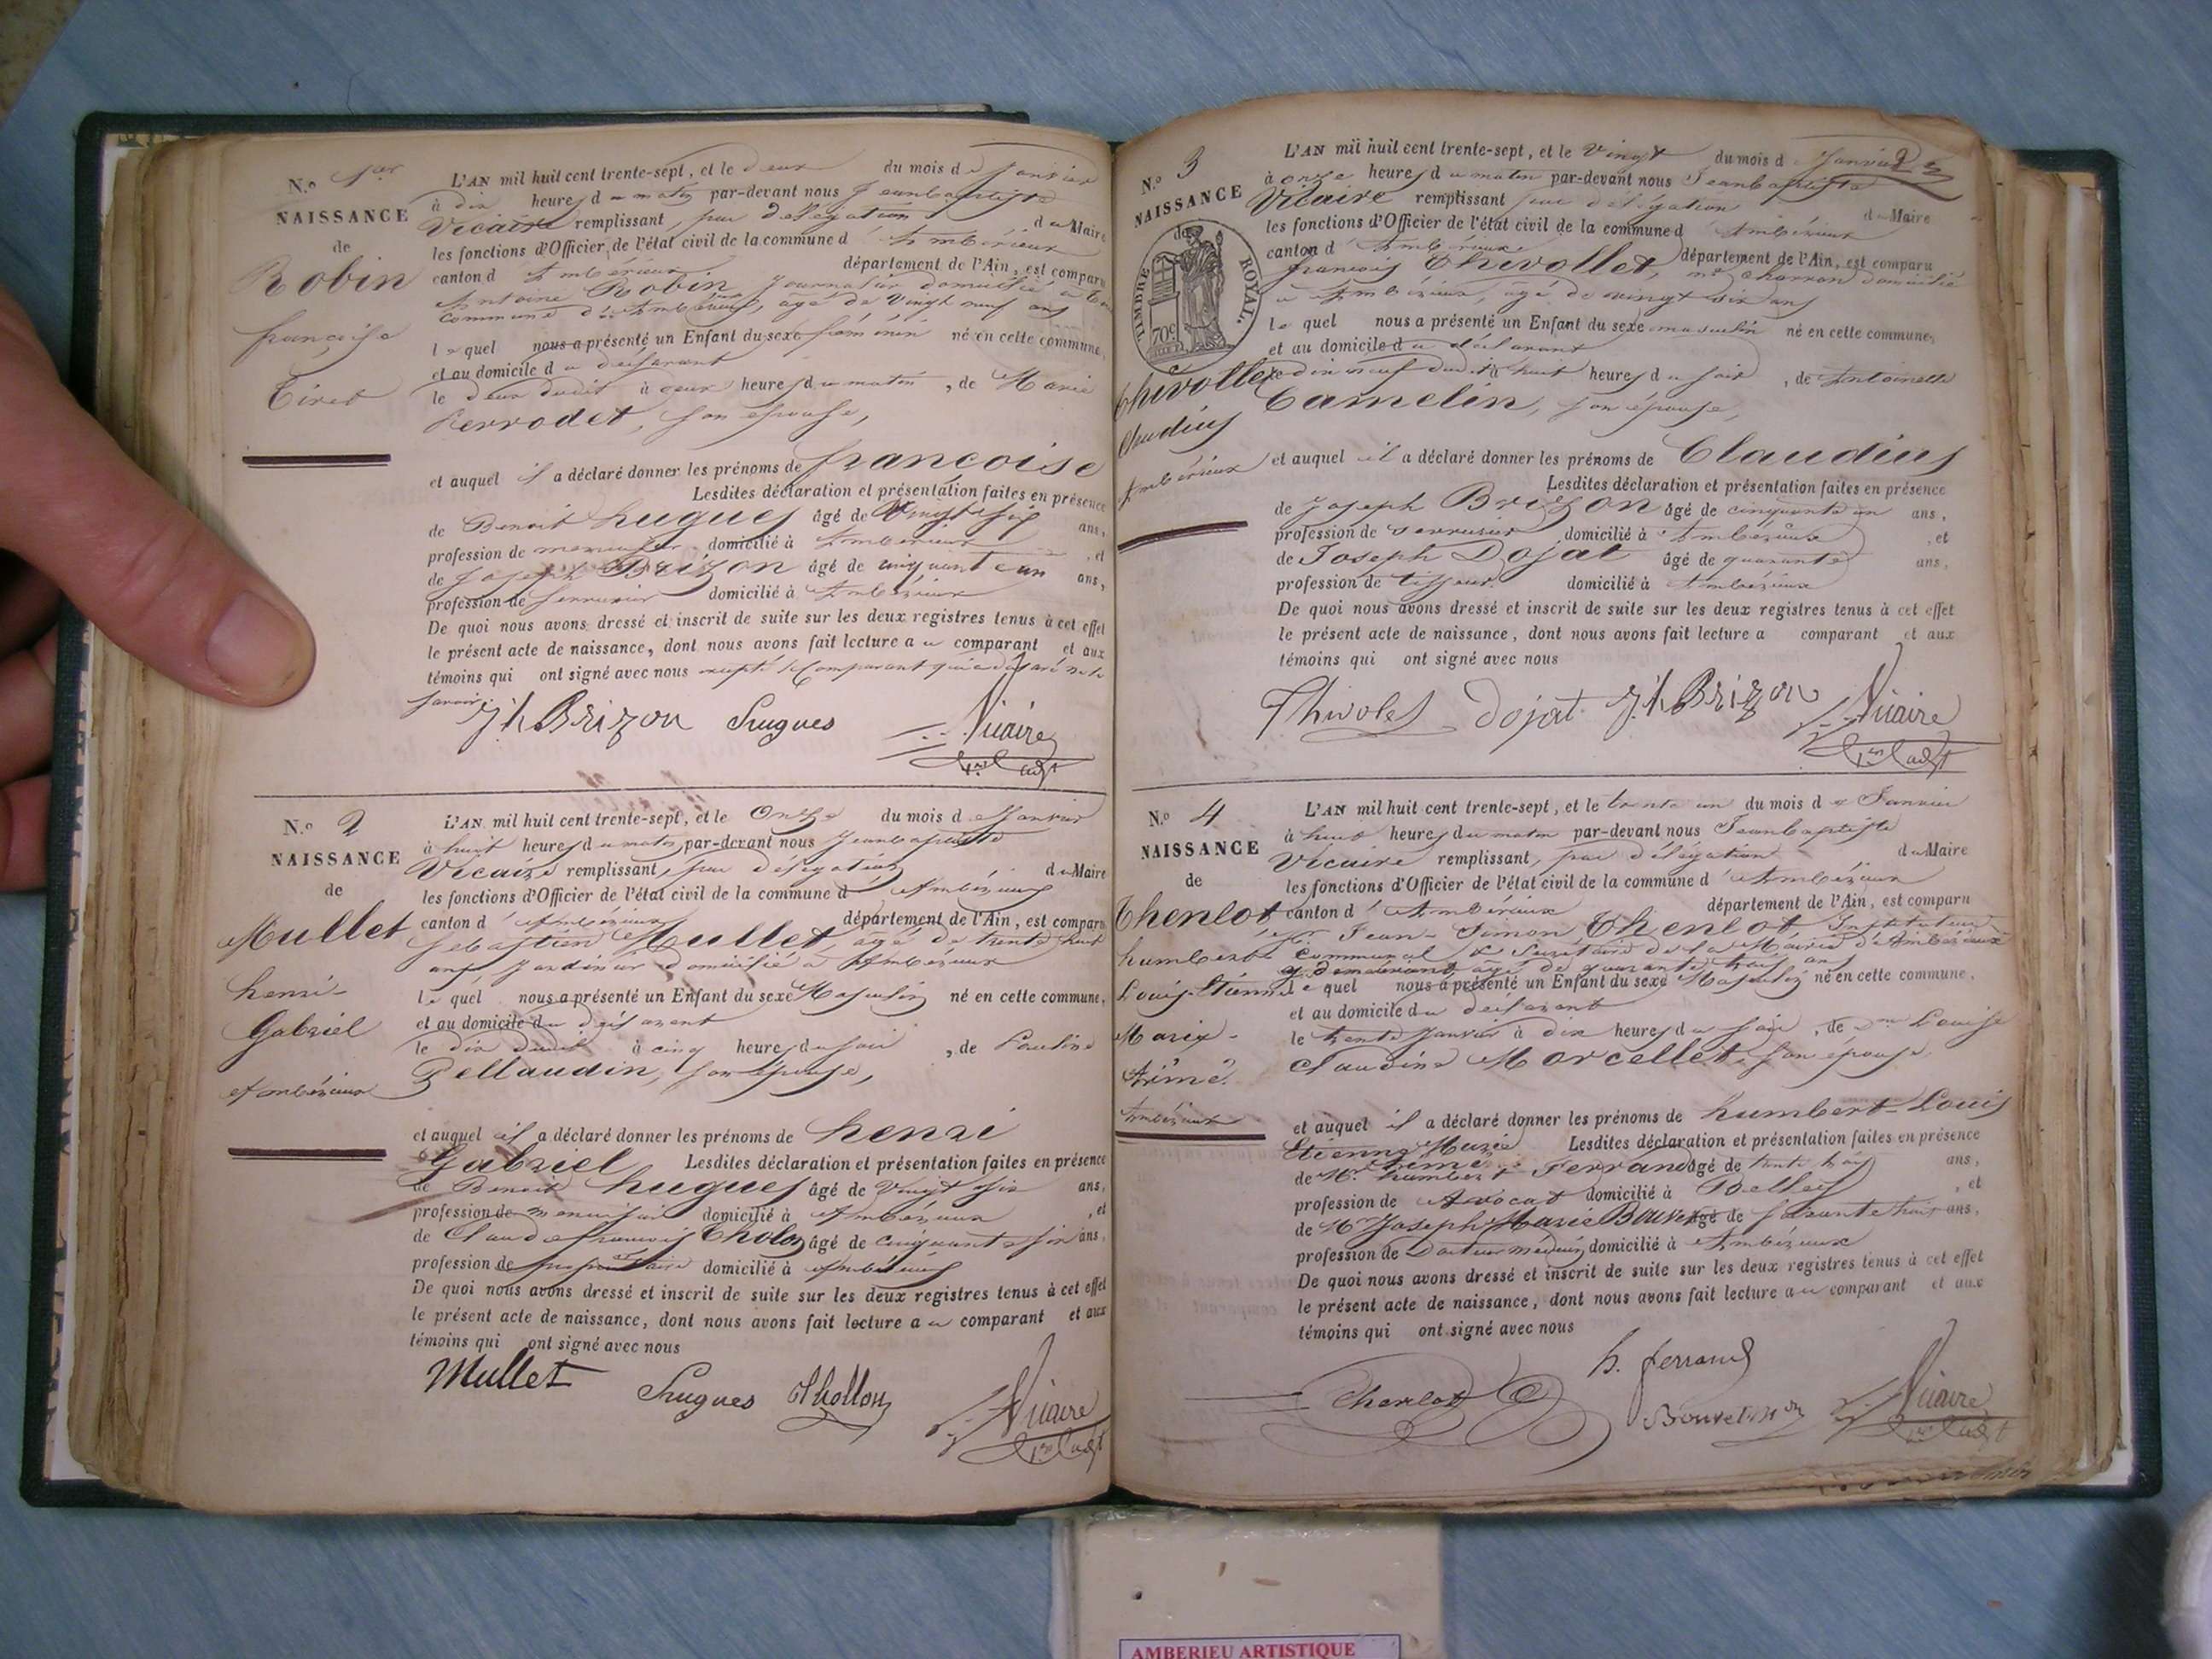 N.o 1er
NAISSANCE
de
Robin
françoise
Tiret
L'AN mil huit cent trente-sept, et le deux du mois de Janvier
à dix heures du matin par-devant nous Jeanbaptiste
Vicaire remplissant par délégation du Maire
les fonctions d'Officier de l'état civil de la commune d'Ambérieux
canton d'Ambérieux département de l'Ain, est comparu
Antoine Robin Journalier domicilié à
commune d'Ambérieux, agé de vingt neuf ans
lequel nous a présenté un Enfant du sexe féminin né en cette commune,
et au domicile du déclarant
le deux dudit à deux heures du matin, de Marie
Perrodet, son épouse,
et auquel il a déclaré donner les prénoms de françoise
Lesdites déclaration et présentation faites en présence
de Benoit hugues âgé de Vingt six ans,
profession de menuisier domicilié à Ambérieux, et
de Joseph Brizon âgé de cinquante un ans,
profession de serrurier domicilié à Ambérieux
De quoi nous avons dressé et inscrit de suite sur les deux registres tenus à cet effet
le présent acte de naissance, dont nous avons fait lecture au comparant et aux
témoins qui ont signé avec nous excepté le Comparant qui a déclaré ne le
savoir.
Jh Brizon Hugues Vicaire
1er adjt
N.o 2
NAISSANCE
de
Mullet
henri
Gabriel
Ambérieux
L'AN mil huit cent trente-sept, et le Onze du mois de Janvier
à huit heures du matin par-devant nous Jeanbaptiste
Vicaire remplissant, par délégation du Maire
les fonctions d'Officier de l'état civil de la commune d'Ambérieux
canton d'Ambérieux département de l'Ain, est comparu
Sébastien Mullet, âgé de trente huit
ans, Jardinier domicilié à Ambérieux
lequel nous a présenté un Enfant du sexe Masculin né en cette commune,
et au domicile du déclarant
le dix dudit à cinq heures du soir, de Pauline
Pellaudin, son épouse,
et auquel il a déclaré donner les prénoms de henri
Gabriel Lesdites déclaration et présentation faites en présence
de Benoit hugues âgé de Vingt six ans,
profession de menuisier domicilié à Ambérieux, et
de Claude françois Tholon âgé de cinquante six ans,
profession de propriétaire domicilié à Ambérieux
De quoi nous avons dressé et inscrit de suite sur les deux registres tenus à cet effet
le présent acte de naissance, dont nous avons fait lecture au comparant et aux
témoins qui ont signé avec nous
Mullet Hugues Thollon Vicaire
1er adjt
2
N.o 3
NAISSANCE
de
TIMBRE ROYAL.
70c
Thivollet
Claudius
Ambérieux
L'AN mil huit cent trente-sept, et le Vingt du mois d Janvier
à onze heures du matin par-devant nous Jeanbaptiste
Vicaire remplissant par délégation du Maire
les fonctions d'Officier de l'état civil de la commune d'Ambérieux
canton d'Ambérieux département de l'Ain, est comparu
françois Thivollet, md charron domicilié
à Ambérieux, agé de vingt six ans
lequel nous a présenté un Enfant du sexe masculin né en cette commune,
et au domicile du déclarant
le dix neuf dudit à huit heures du soir, de Antoinette
Camelin, son épouse,
et auquel il a déclaré donner les prénoms de Claudius
Lesdites déclaration et présentation faites en présence
de Joseph Brizon âgé de cinquante un ans,
profession de serrurier domicilié à Ambérieux, et
de Joseph Dojat âgé de quarante ans,
profession de tisseur domicilié à Ambérieux
De quoi nous avons dressé et inscrit de suite sur les deux registres tenus à cet effet
le présent acte de naissance, dont nous avons fait lecture a comparant et aux
témoins qui ont signé avec nous
Thivolet Dojat Jh Brizon Vicaire
1er adjt
N.o 4
NAISSANCE
de
Chenlot
humbert
Louis-Etienne
Marie-
Aimé
Ambérieux
L'AN mil huit cent trente-sept, et le trente un du mois de Janvier
à huit heures du matin par-devant nous Jeanbaptiste
Vicaire remplissant, par délégation du Maire
les fonctions d'Officier de l'état civil de la commune d'Ambérieux
canton d'Ambérieux département de l'Ain, est comparu
Jean-Simon Chenlot Instituteur
communal & Secrétaire de la Mairie d'Ambérieux
y demeurant, âgé de quarante trois ans
lequel nous a présenté un Enfant du sexe Masculin né en cette commune,
et au domicile du déclarant
le trente Janvier à dix heures du soir, de Dme Louise
Claudine Morcellet, son épouse
et auquel il a déclaré donner les prénoms de humbert-Louis
Etienne Marie Lesdites déclaration et présentation faites en présence
Aimé
de Mr humbert Ferrand âgé de trente trois ans,
profession de Avocat domicilié à Belley, et
de Mr Joseph Marie Bouvet âgé de soixante huit ans,
profession de Docteur médecin domicilié à Ambérieux
De quoi nous avons dressé et inscrit de suite sur les deux registres tenus à cet effet
le présent acte de naissance, dont nous avons fait lecture au comparant et aux
témoins qui ont signé avec nous
h. ferrand
Chenlot Bouvet Vicaire
1er adjt
AMBERIEU ARTISTIQUE